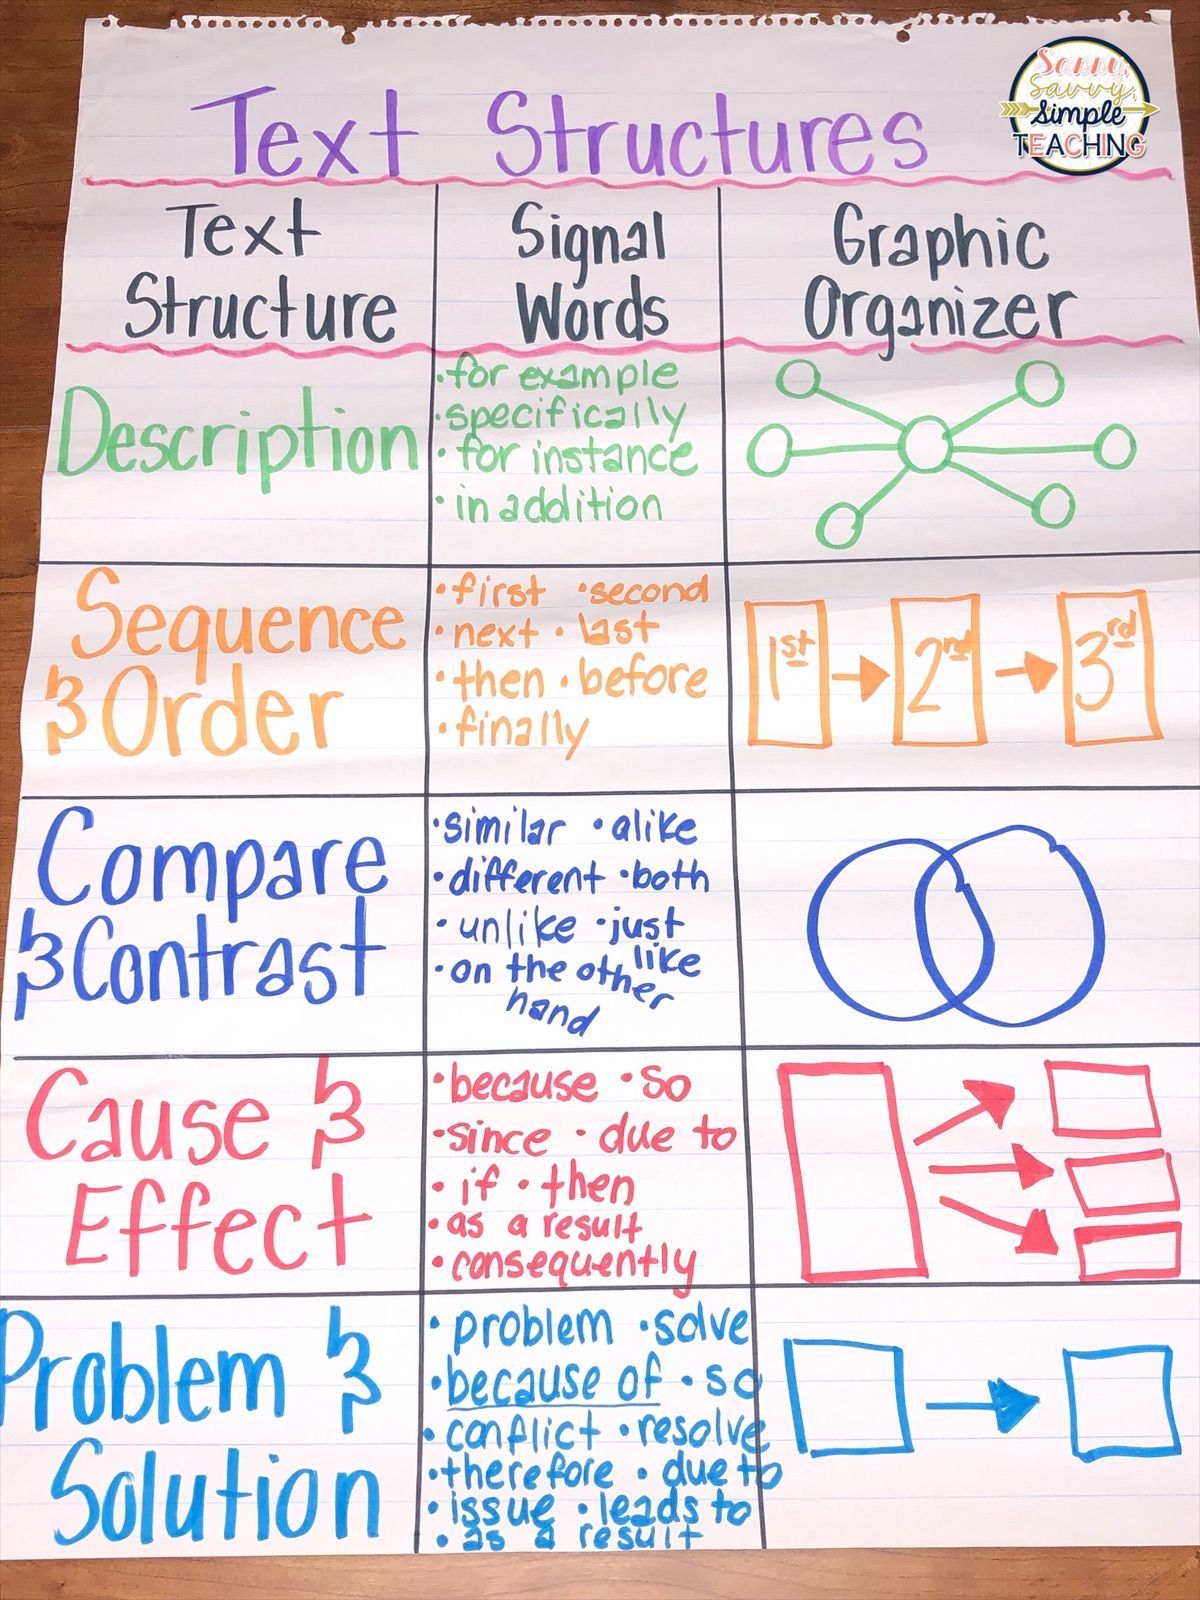 Sassy,
Savvy,
Simple
TEACHING
Text Structures
Text
Structure
Signal
Words
Graphic
Organizer
Description
•for example
•specifically
•for instance
•in addition
Sequence
& Order
•first •second
•next •last
•then •before
•finally
1st
2nd
3rd
Compare
& Contrast
•similar •alike
•different •both
•unlike •just
like
•on the other
hand
Cause &
Effect
•because •so
•since •due to
•if •then
•as a result
•consequently
Problem &
Solution
•problem •solve
•because of •so
•conflict •resolve
•therefore •due to
•issue •leads to
•as a result